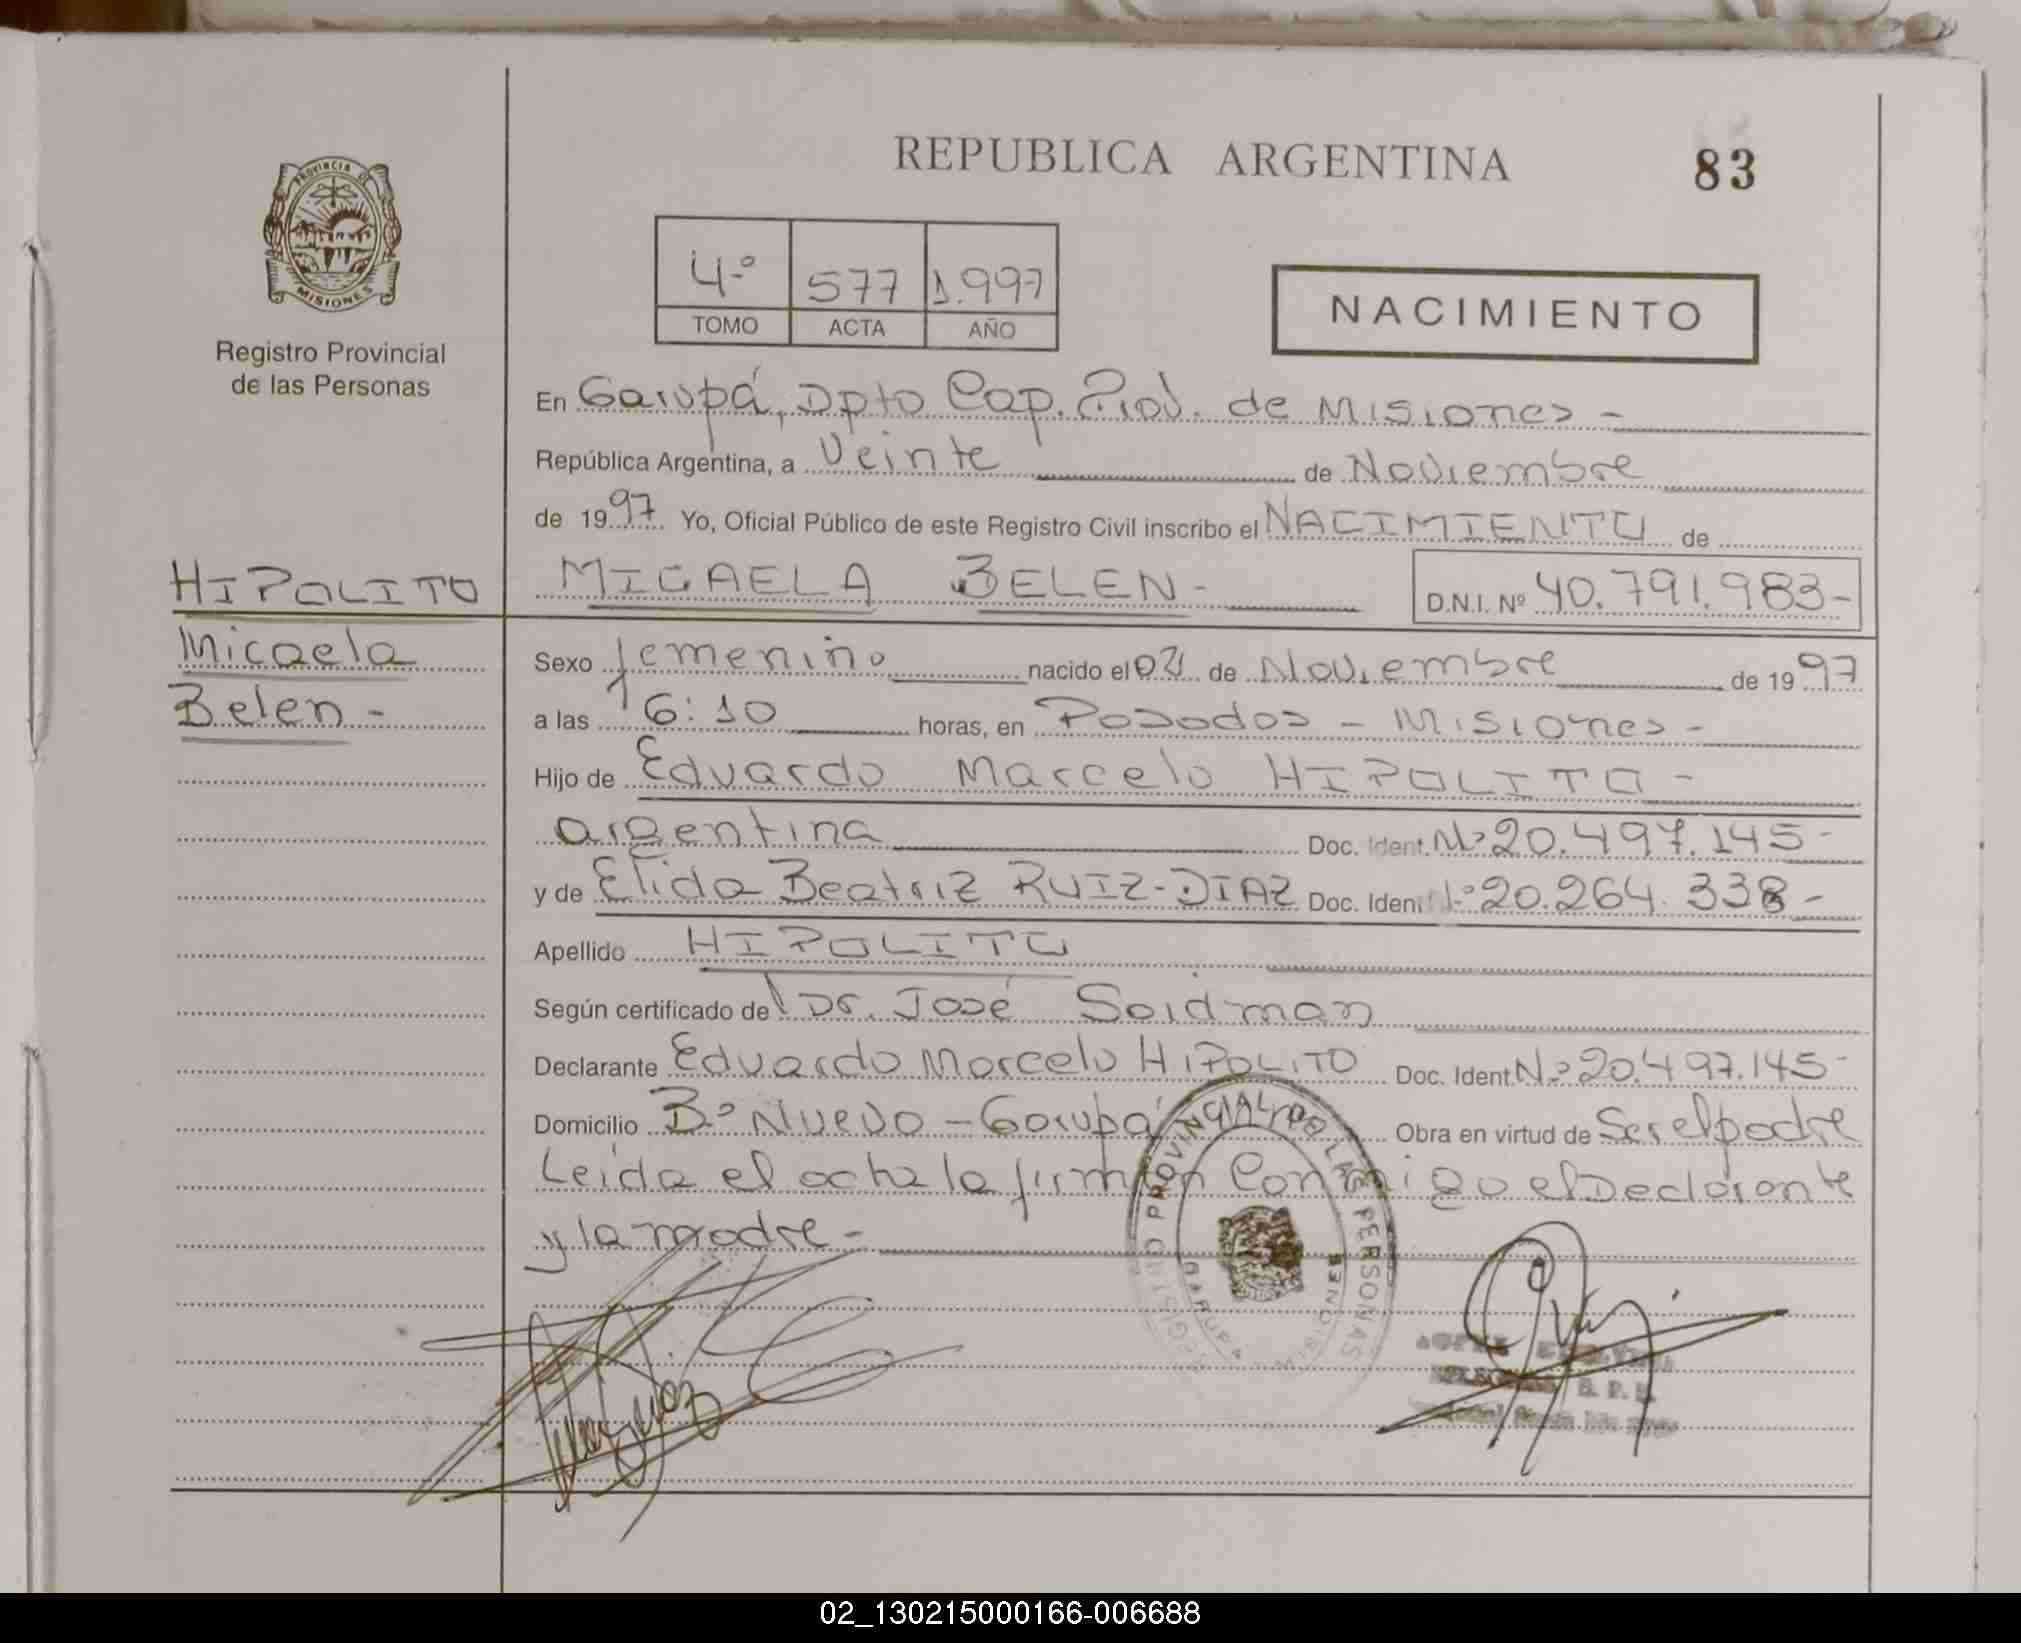 REPUBLICA ARGENTINA
83
PROVINCIA DE
MISIONES
Registro Provincial
de las Personas
4.º 577 1.997
TOMO ACTA AÑO
NACIMIENTO
En Garupá, Dpto Cap. Prov. de Misiones -
República Argentina, a Veinte de Noviembre
de 1997 Yo, Oficial Público de este Registro Civil inscribo el NACIMIENTO de
HIPOLITO
MICAELA BELEN - D.N.I. Nº 40.791.983-
Micaela
Belen -
Sexo femenino nacido el de Noviembre de 1997
a las 16:10 horas, en Posadas - Misiones -
Hijo de Eduardo Marcelo HIPOLITO -
argentina Doc. Ident. Nº 20.497.145-
y de Elida Beatriz RUIZ-DIAZ Doc. Ident. Nº 20.264.338-
Apellido HIPOLITO
Según certificado del Dr. José Soidman
Declarante Eduardo Marcelo HIPOLITO Doc. Ident. Nº 20.497.145-
Domicilio Bº Nuevo - Garupá Obra en virtud de Ser el padre
Leida el acta la firman Conmigo el Declarante
y la madre -
REGISTRO PROVINCIAL DE LAS PERSONAS
GARUPA
MISIONES
02_130215000166-006688